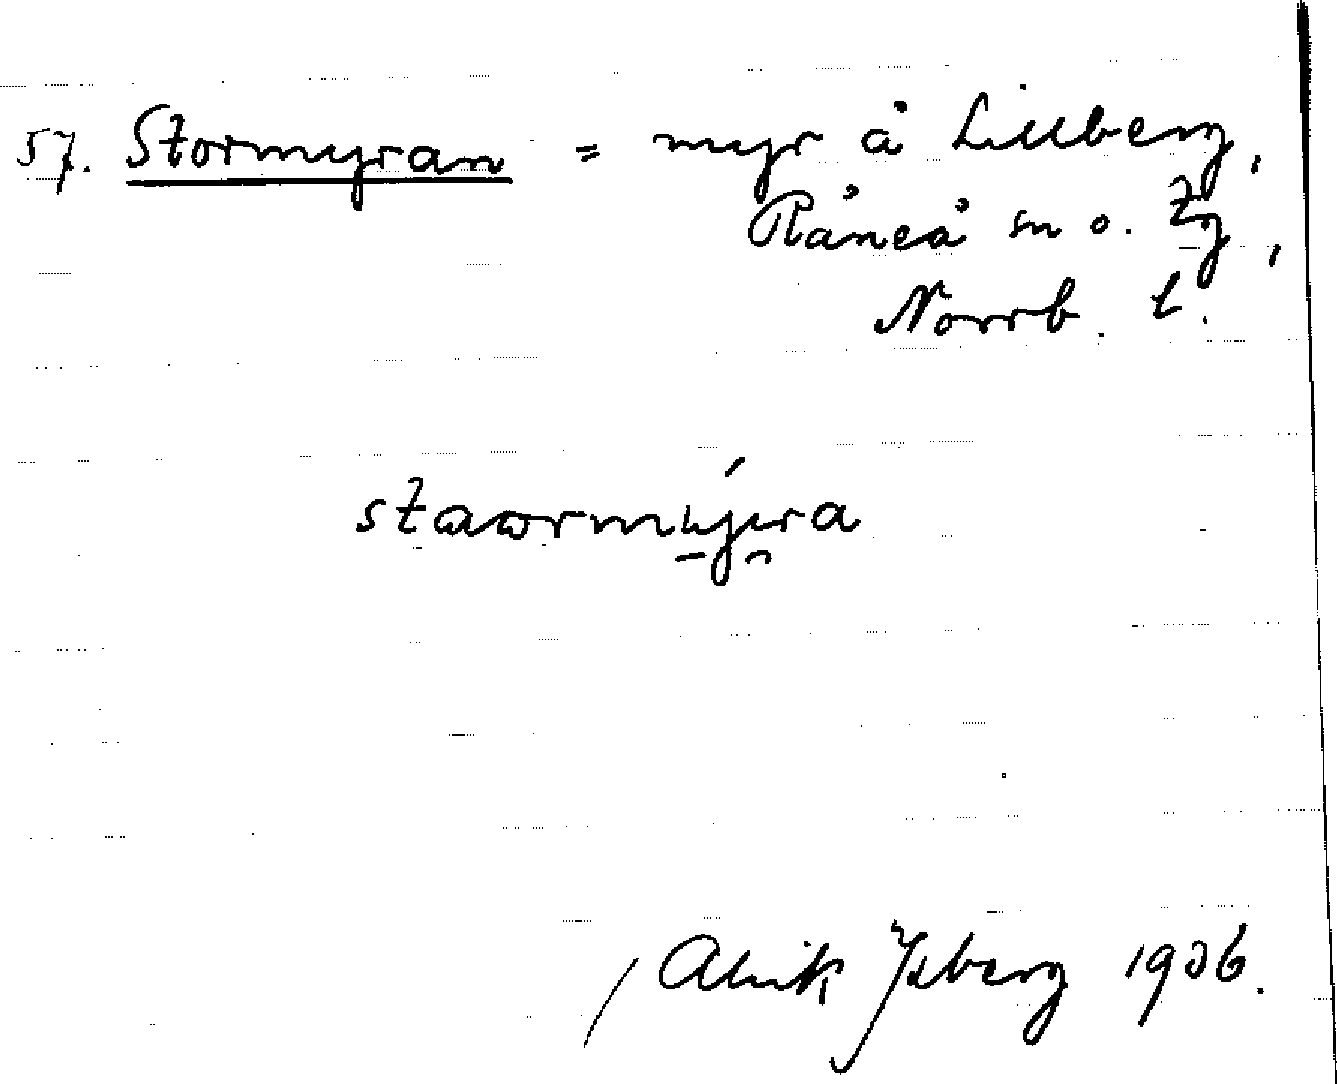 57. Stormyran = myr å Lillberg,
Råneå sn o. tg,
Norrb. l.
stawrmýra
Alrik Ysberg 1906.